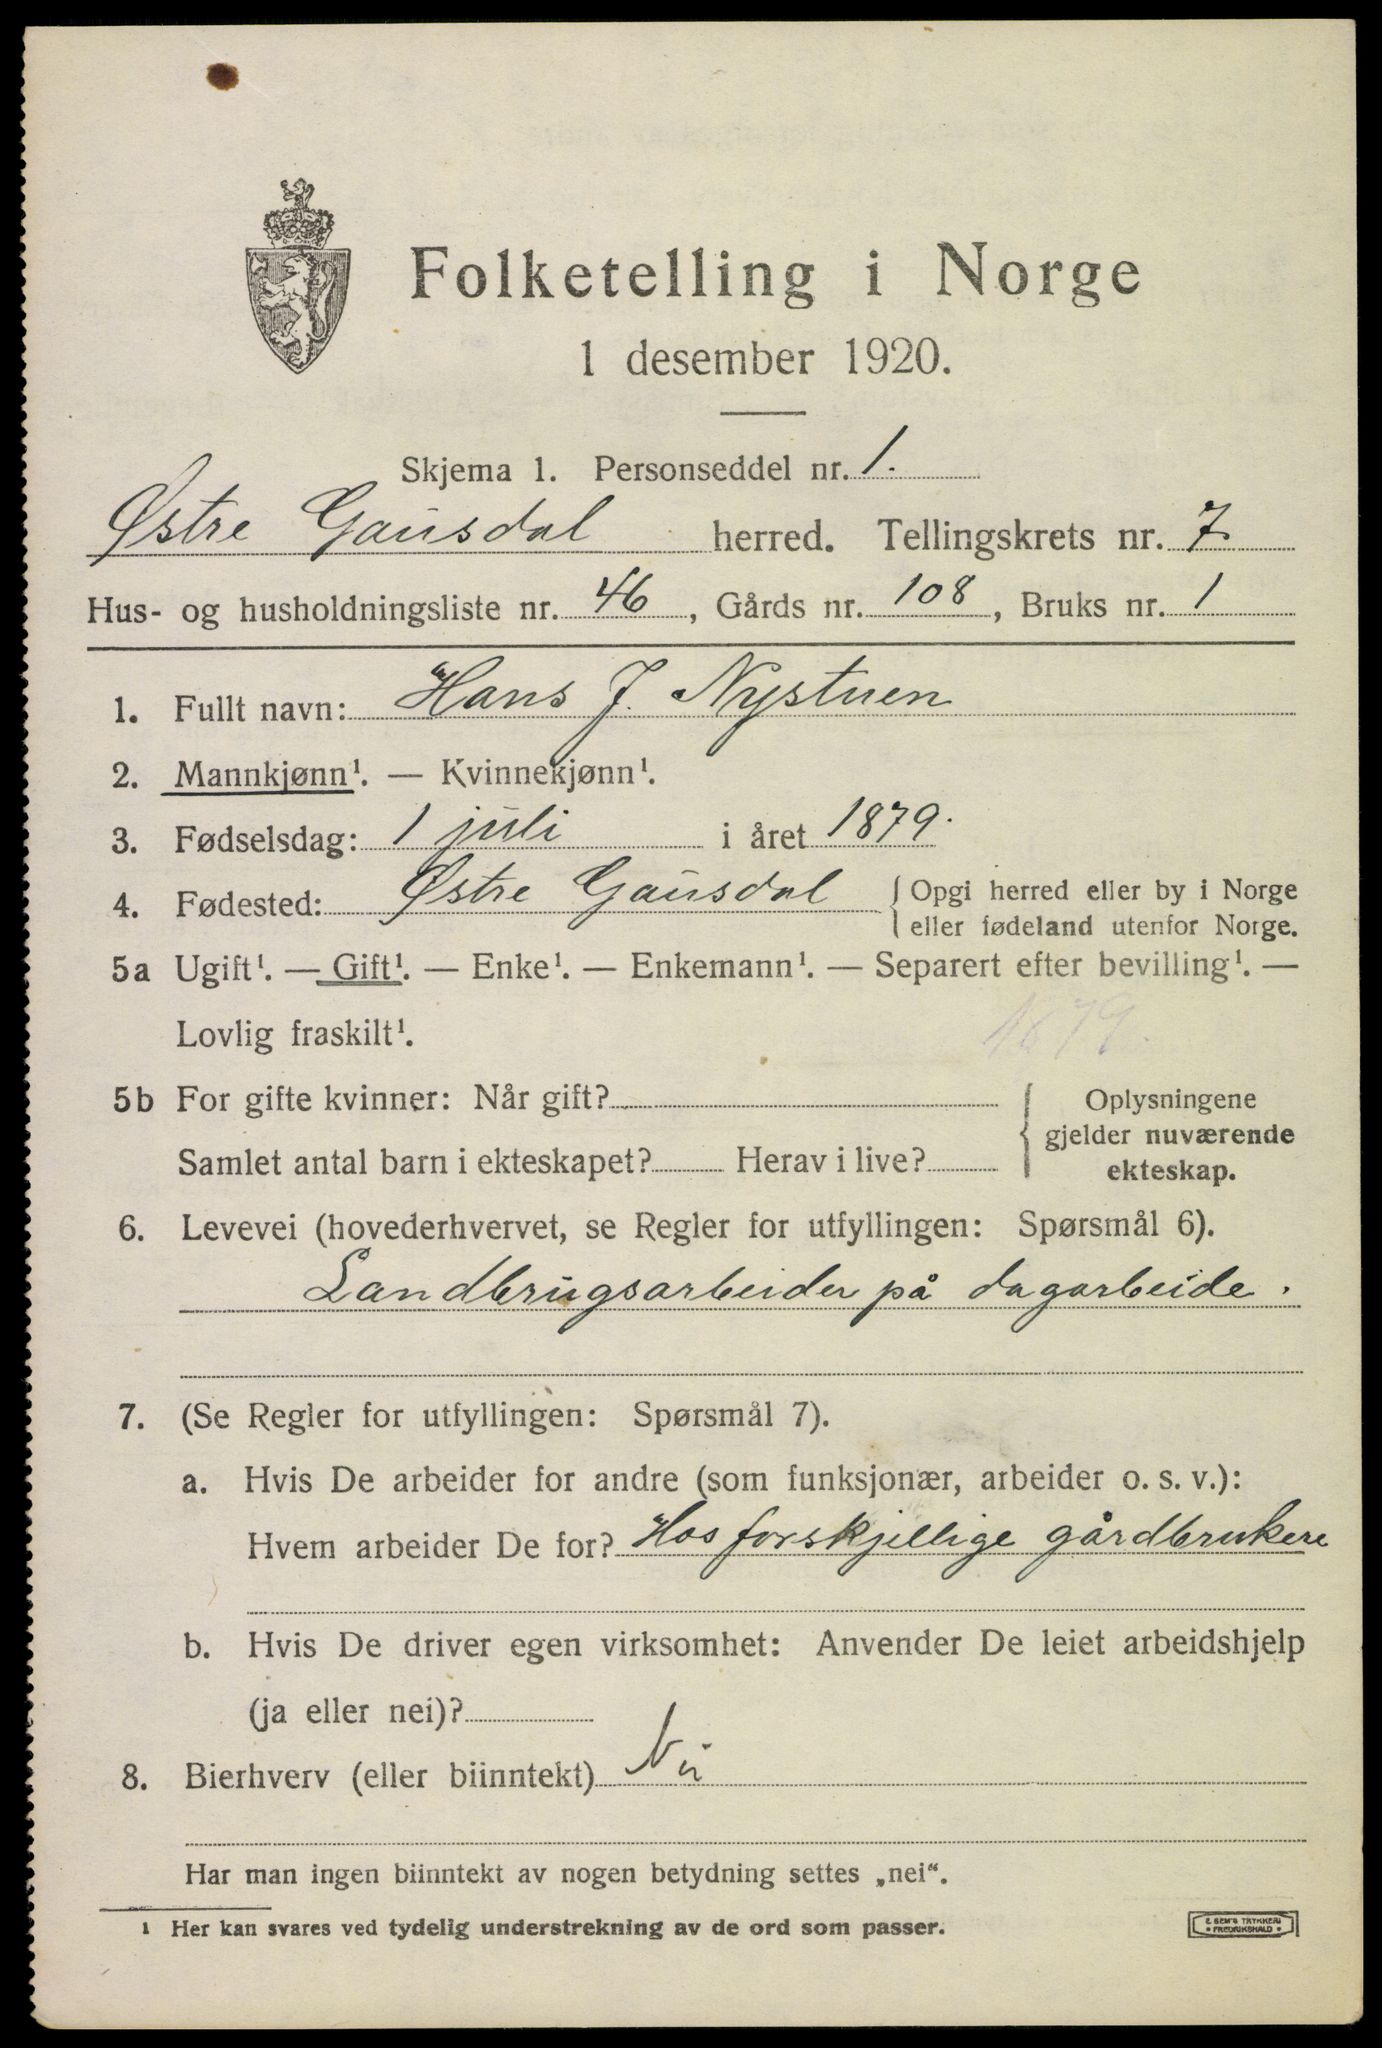 Folketelling i Norge
1 desember 1920.
Skjema 1. Personseddel nr. 1.
Østre Gausdal herred. Tellingskrets nr. 7
Hus- og husholdningsliste nr. 46, Gårds nr. 108, Bruks nr. 1
1. Fullt navn: Hans J. Nystuen
2. Mannkjønn¹. — Kvinnekjønn¹.
3. Fødselsdag: 1 juli i året 1879.
4. Fødested: Østre Gausdal { Opgi herred eller by i Norge
eller fødeland utenfor Norge.
5a Ugift¹. — Gift¹. — Enke¹. — Enkemann¹. — Separert efter bevilling¹. —
Lovlig fraskilt¹.
1879.
5b For gifte kvinner: Når gift? { Oplysningene
gjelder nuværende
Samlet antal barn i ekteskapet? Herav i live?
ekteskap.
6. Levevei (hovederhvervet, se Regler for utfyllingen: Spørsmål 6).
Landbrugsarbeider på dagarbeide.
7. (Se Regler for utfyllingen: Spørsmål 7).
a. Hvis De arbeider for andre (som funksjonær, arbeider o. s. v.):
Hvem arbeider De for? Hos forskjellige gårdbrukere
b. Hvis De driver egen virksomhet: Anvender De leiet arbeidshjelp
(ja eller nei)?
8. Bierhverv (eller biinntekt) Nei
Har man ingen biinntekt av nogen betydning settes „nei“.
¹ Her kan svares ved tydelig understrekning av de ord som passer.
E SEM'S TRYKKERI
• FREDRIKSHALD •